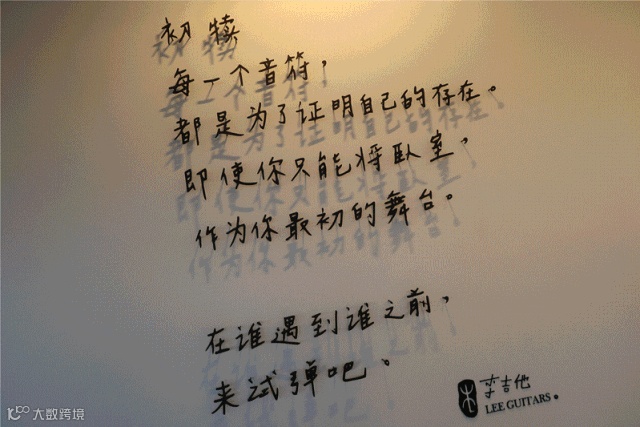 初犊
每一个音符，
都是为了证明自己的存在。
即使你只能将卧室，
作为你最初的舞台。
在谁遇到谁之前，
来试弹吧。
李吉他
LEE GUITARS。
大数跨境